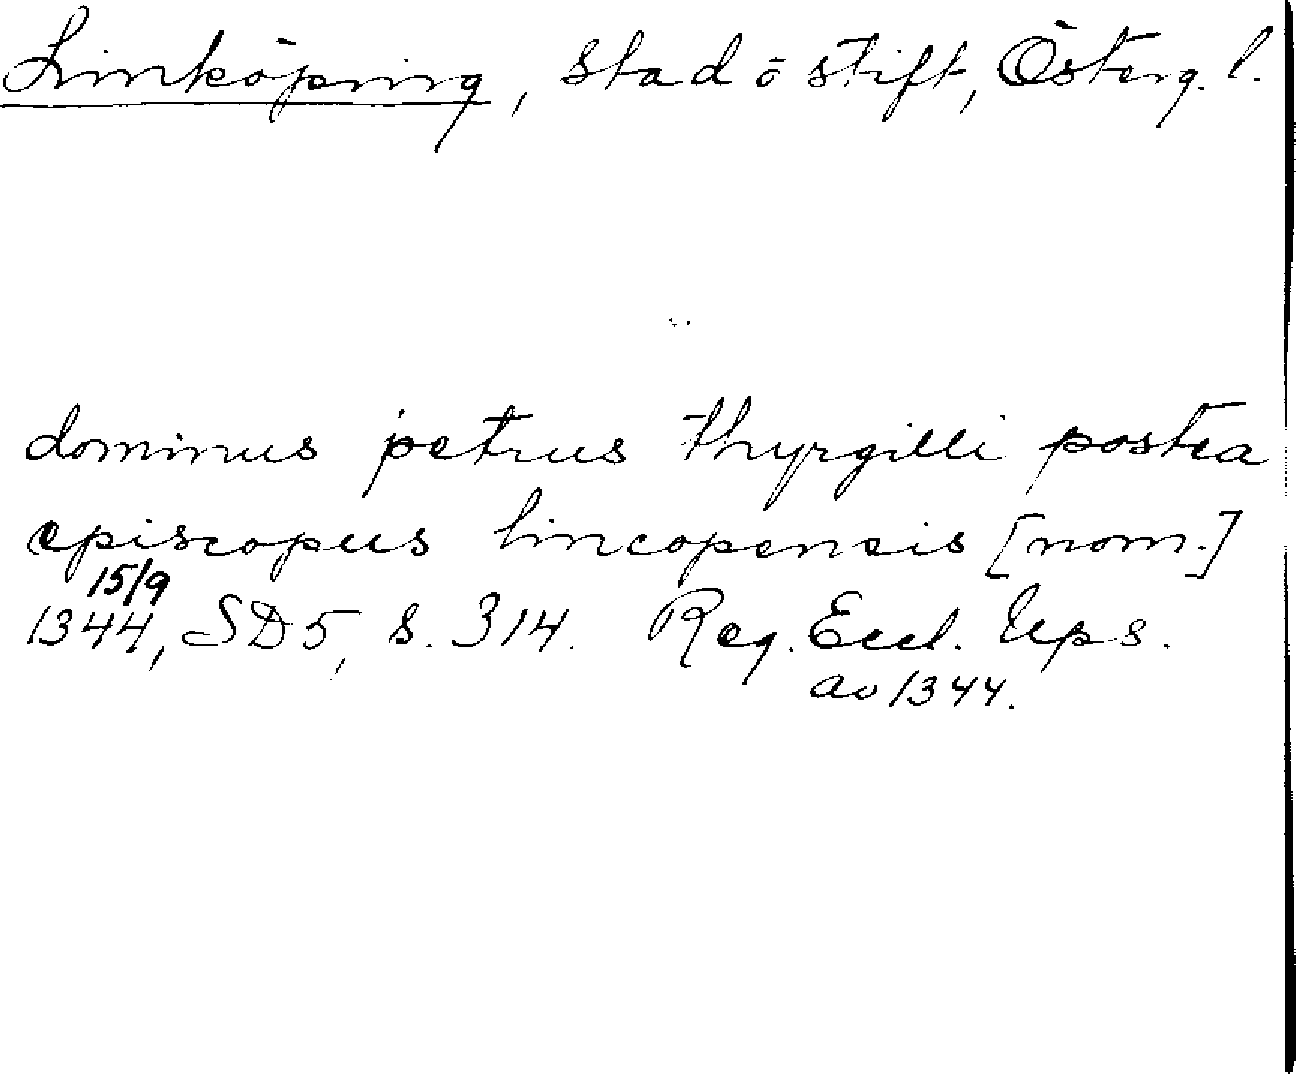 Linköping, stad o stift, Österg. l.
dominus petrus thyrgilli postea
episcopus lincopensis [nom.]
15/9
1344, SD5, s. 314. Reg. Eccl. Ups.
av 1344.